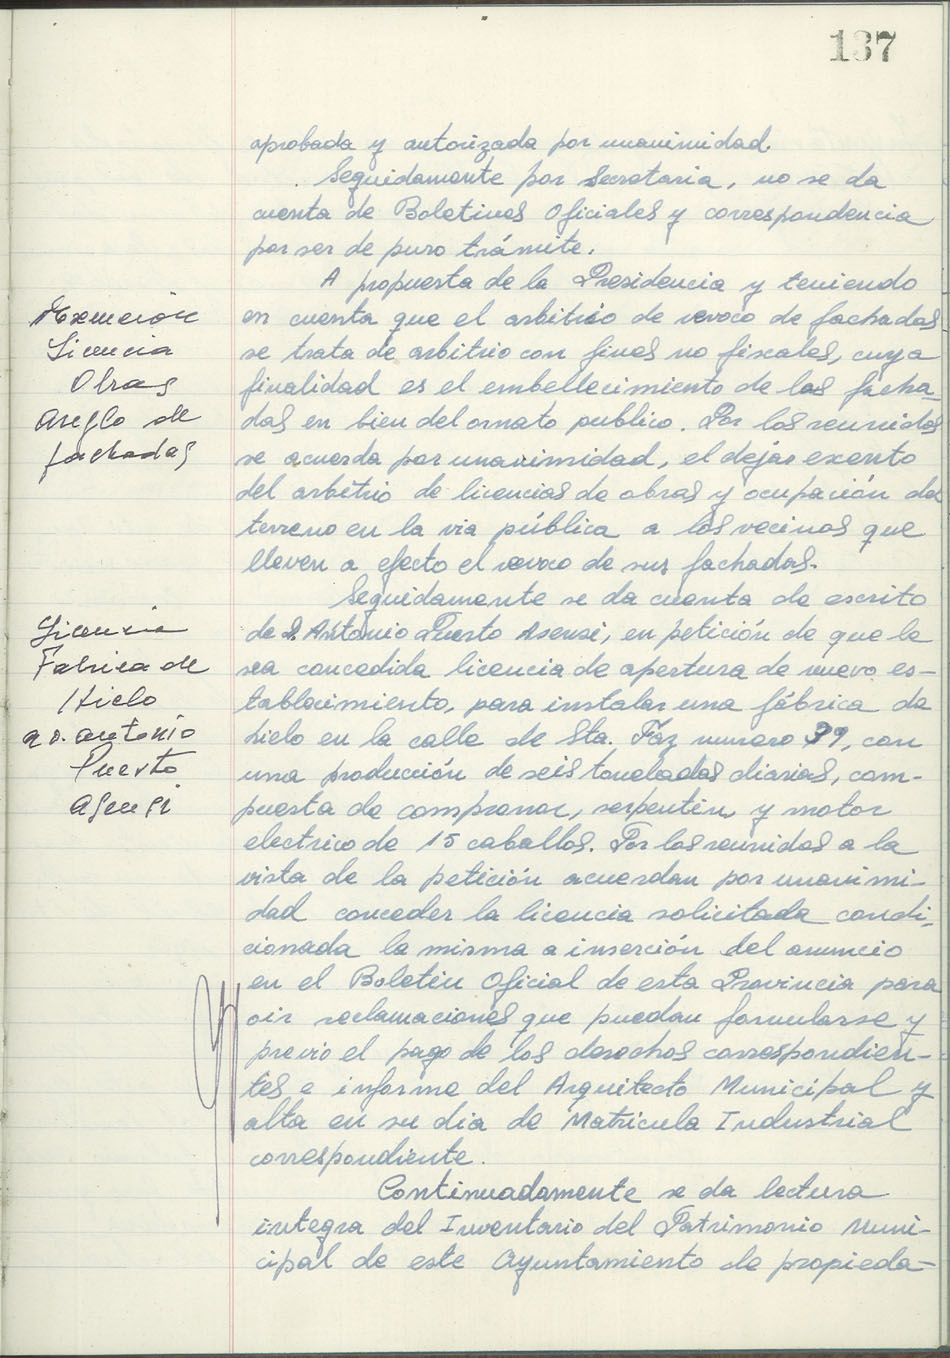 137
aprobada y autorizada por unanimidad.
Seguidamente por Secretaria, no se da
cuenta de Boletines Oficiales y correspondencia
por ser de puro trámite.
A propuesta de la Presidencia y teniendo
Exención
Licencia
Obras
arreglo de
fachadas
en cuenta que el arbitrio de revoco de fachadas
se trata de arbitrio con fines no fiscales, cuya
finalidad es el embellecimiento de las facha-
das en bien del ornato publico. Por los reunidos
se acuerda por unanimidad, el dejar exento
del arbitrio de licencias de obras y ocupación de
terreno en la via pública a los vecinos que
lleven a efecto el revoco de sus fachadas.
Seguidamente se da cuenta de escrito
Licencia
Fabrica de
Hielo
a D. Antonio
Puerto
Asensi
de D. Antonio Puerto Asensi, en petición de que le
sea concedida licencia de apertura de nuevo es-
tablecimiento, para instalar una fábrica de
hielo en la calle de Sta. Faz numero 39, con
una producción de seis toneladas diarias, com-
puesta de compresor, serpentin y motor
electrico de 15 caballos. Por los reunidos a la
vista de la petición acuerdan por unanimi-
dad conceder la licencia solicitada condi-
cionada la misma a inserción del anuncio
en el Boletin Oficial de esta Provincia para
oir reclamaciones que puedan formularse y
previo el pago de los derechos correspondien-
tes e informe del Arquitecto Municipal y
alta en su dia de Matricula Industrial
correspondiente.
Continuadamente se da lectura
integra del Inventario del Patrimonio Muni-
cipal de este Ayuntamiento de propieda-